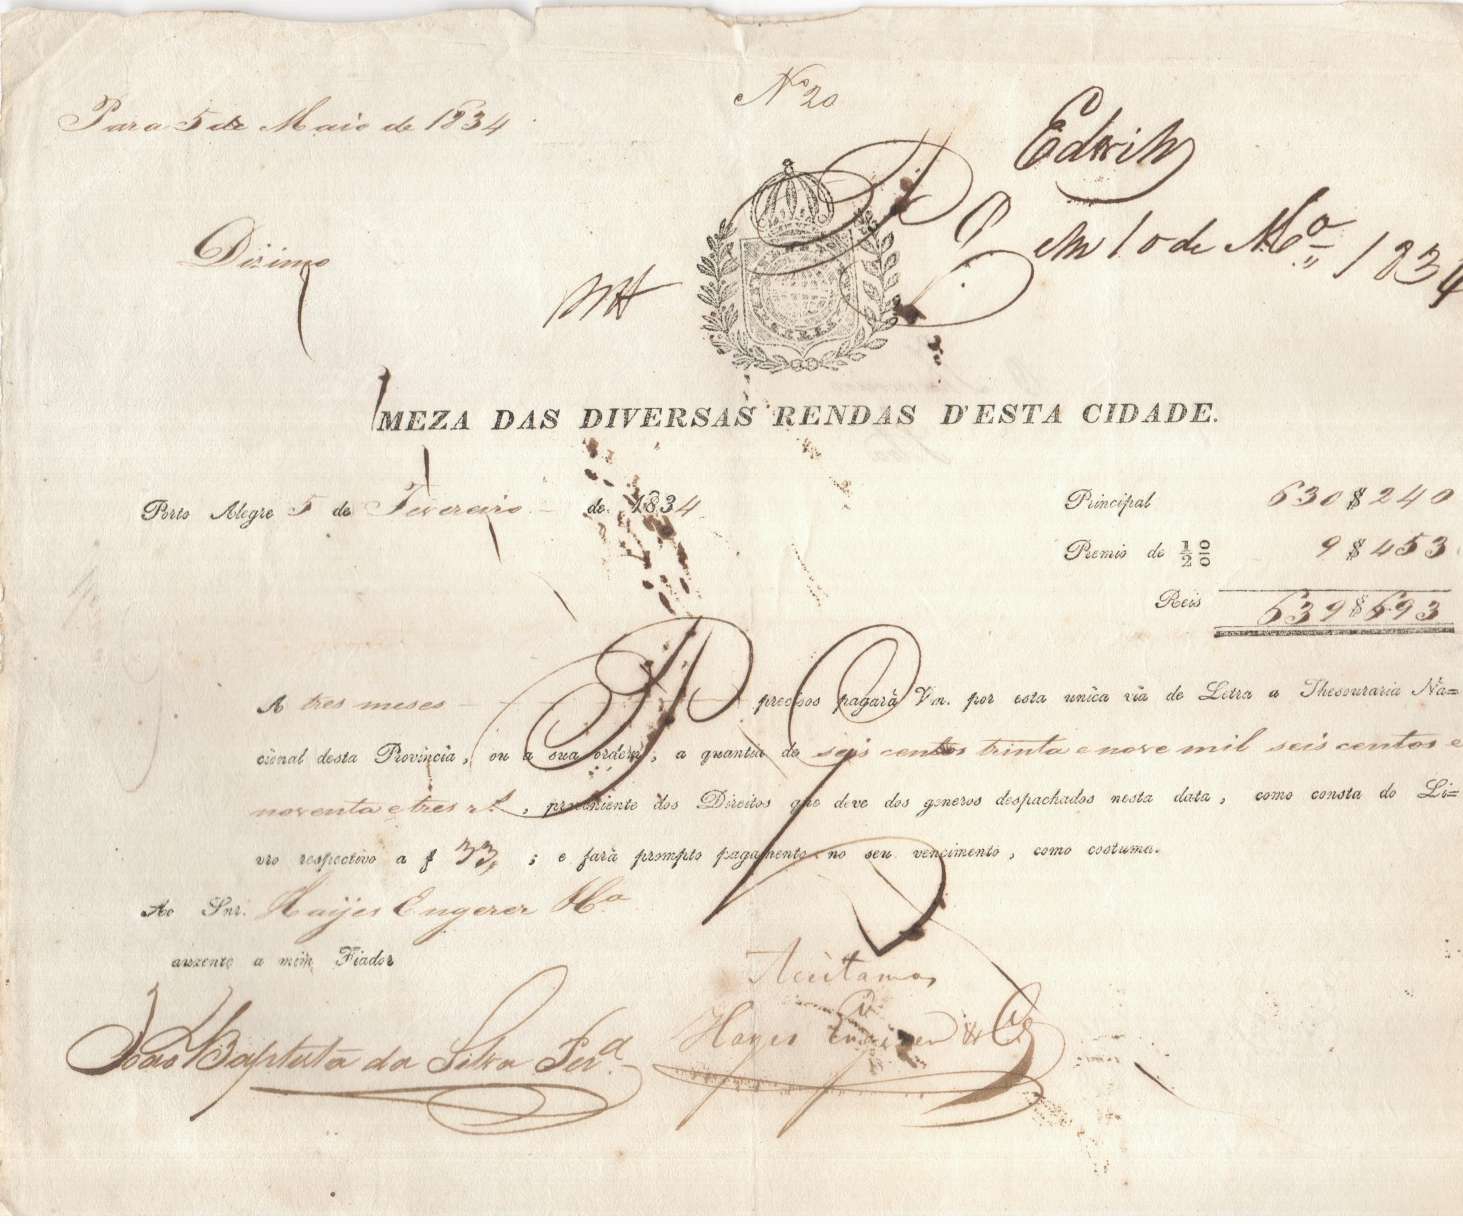 Nº 20
Para 5 de Maio de 1834
Dizimo
em 10 de Mço 1834
MEZA DAS DIVERSAS RENDAS D'ESTA CIDADE.
Porto Alegre 5 de Fevereiro de 1834
Principal 630$240
Premio de ½ %  9$453
Reis 639$693
A tres mezes precisos pagará Vm. por esta unica via de Letra a Thesouraria Na=
cional desta Provincia, ou a sua ordem, a quantia de seis centos trinta e nove mil seis centos e
noventa e tres rs, proveniente dos Direitos que deve dos generos despachados nesta data, como consta do Li=
vro respectivo a f 33, ; e fará prompto pagamento no seu vencimento, como costuma.
Ao Snr. Haijes Engerer &Ca
auzente a mim Fiador
Aceitamos
João Baptista da Silva Pera
Hayes Engerer & Ca